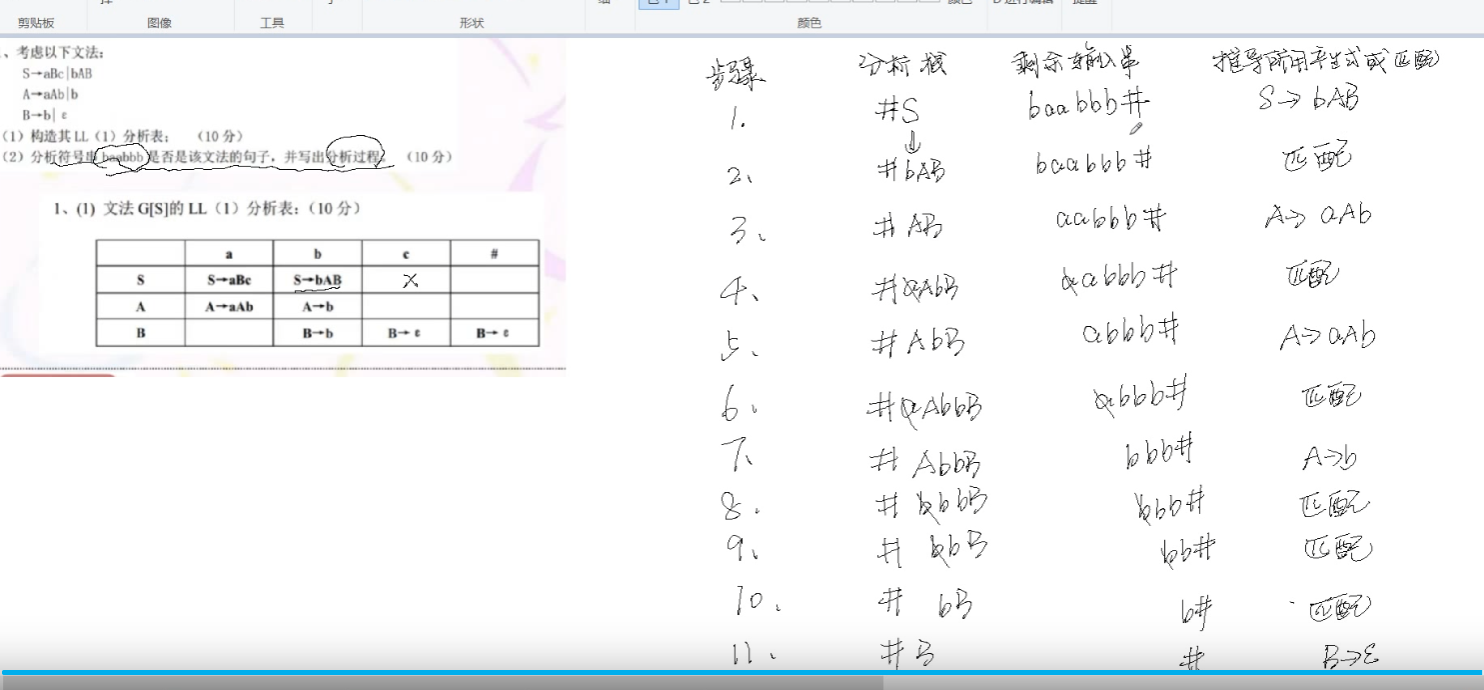 剪贴板 图像 工具 形状 颜色
、考虑以下文法:
S→aBc|bAB
A→aAb|b
B→b| ε
(1) 构造其 LL (1) 分析表; (10 分)
(2) 分析符号串 baabbb 是否是该文法的句子,并写出分析过程。 (10 分)
1、(1) 文法 G[S]的 LL(1)分析表:(10 分)
a b c #
S S→aBc S→bAB ×
A A→aAb A→b
B B→b B→ ε B→ ε
步骤 分析栈 剩余输入串 推导所用产生式或匹配
1. #S baabbb# S→bAB
2、 #bAB baabbb# 匹配
3、 #AB aabbb# A→aAb
4、 #aAbB aabbb# 匹配
5、 #AbB abbb# A→aAb
6、 #aAbbB abbb# 匹配
7、 #AbbB bbb# A→b
8. #bbbB bbb# 匹配
9、 #bbB bb# 匹配
10、 #bB b# 匹配
11、 #B # B→ε